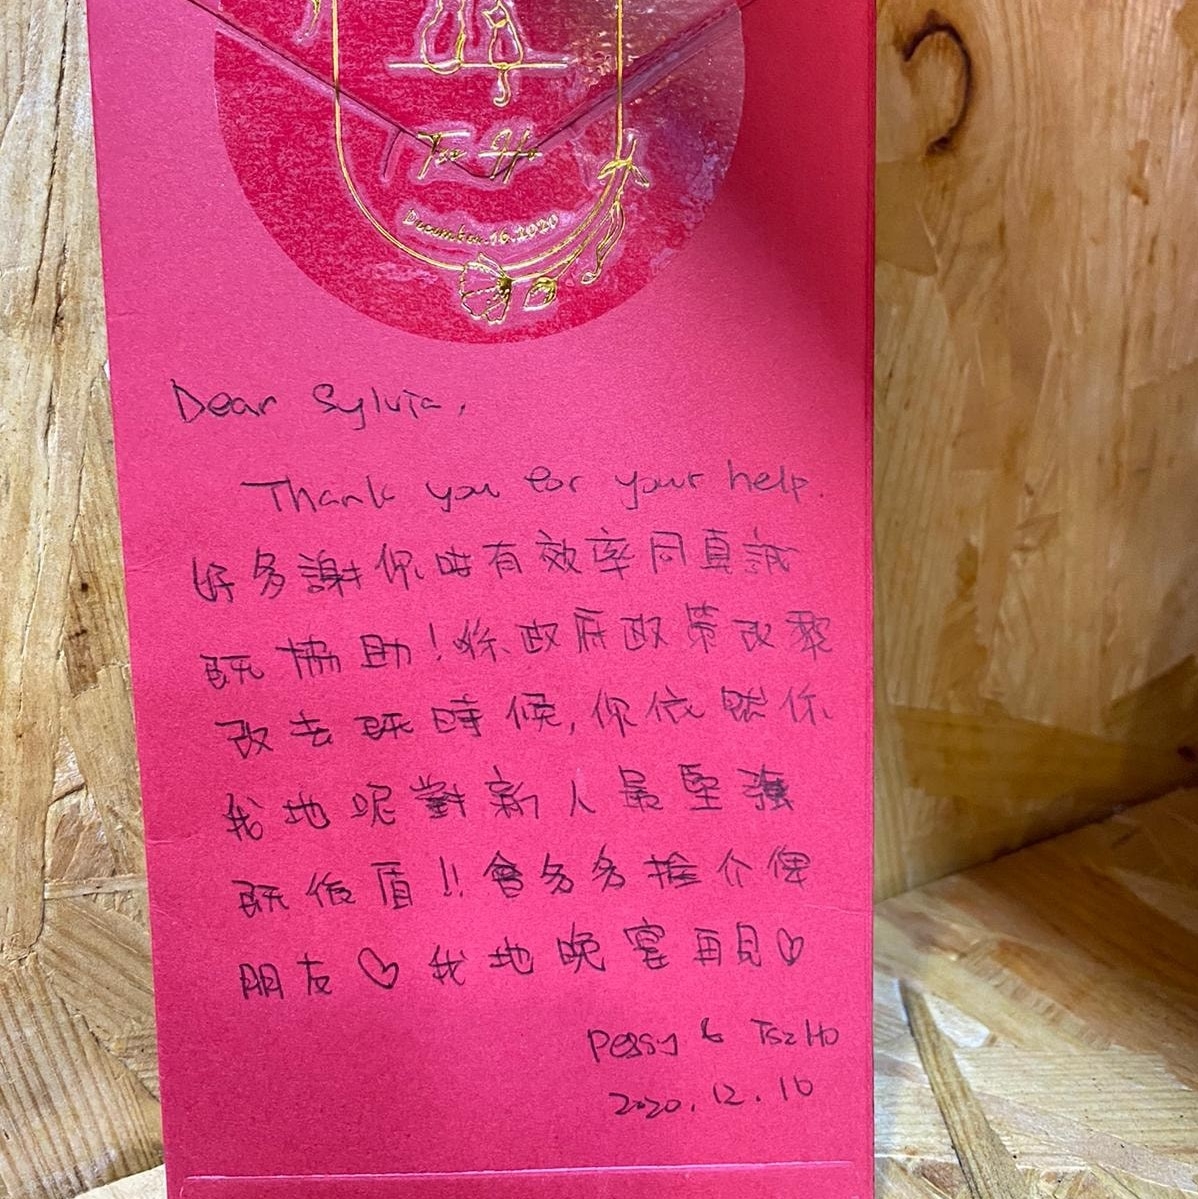 Tsz Ho
December.16.2020
Dear Sylvia,
Thank you for your help.
好多謝你咁有效率同真誠
既協助！係政府政策改黎
改去既時候,你依然係
我地呢對新人最堅強
既後盾!! 會多多推介俾
朋友♡我地晚宴再見♡
Peggy & Tsz Ho
2020.12.16